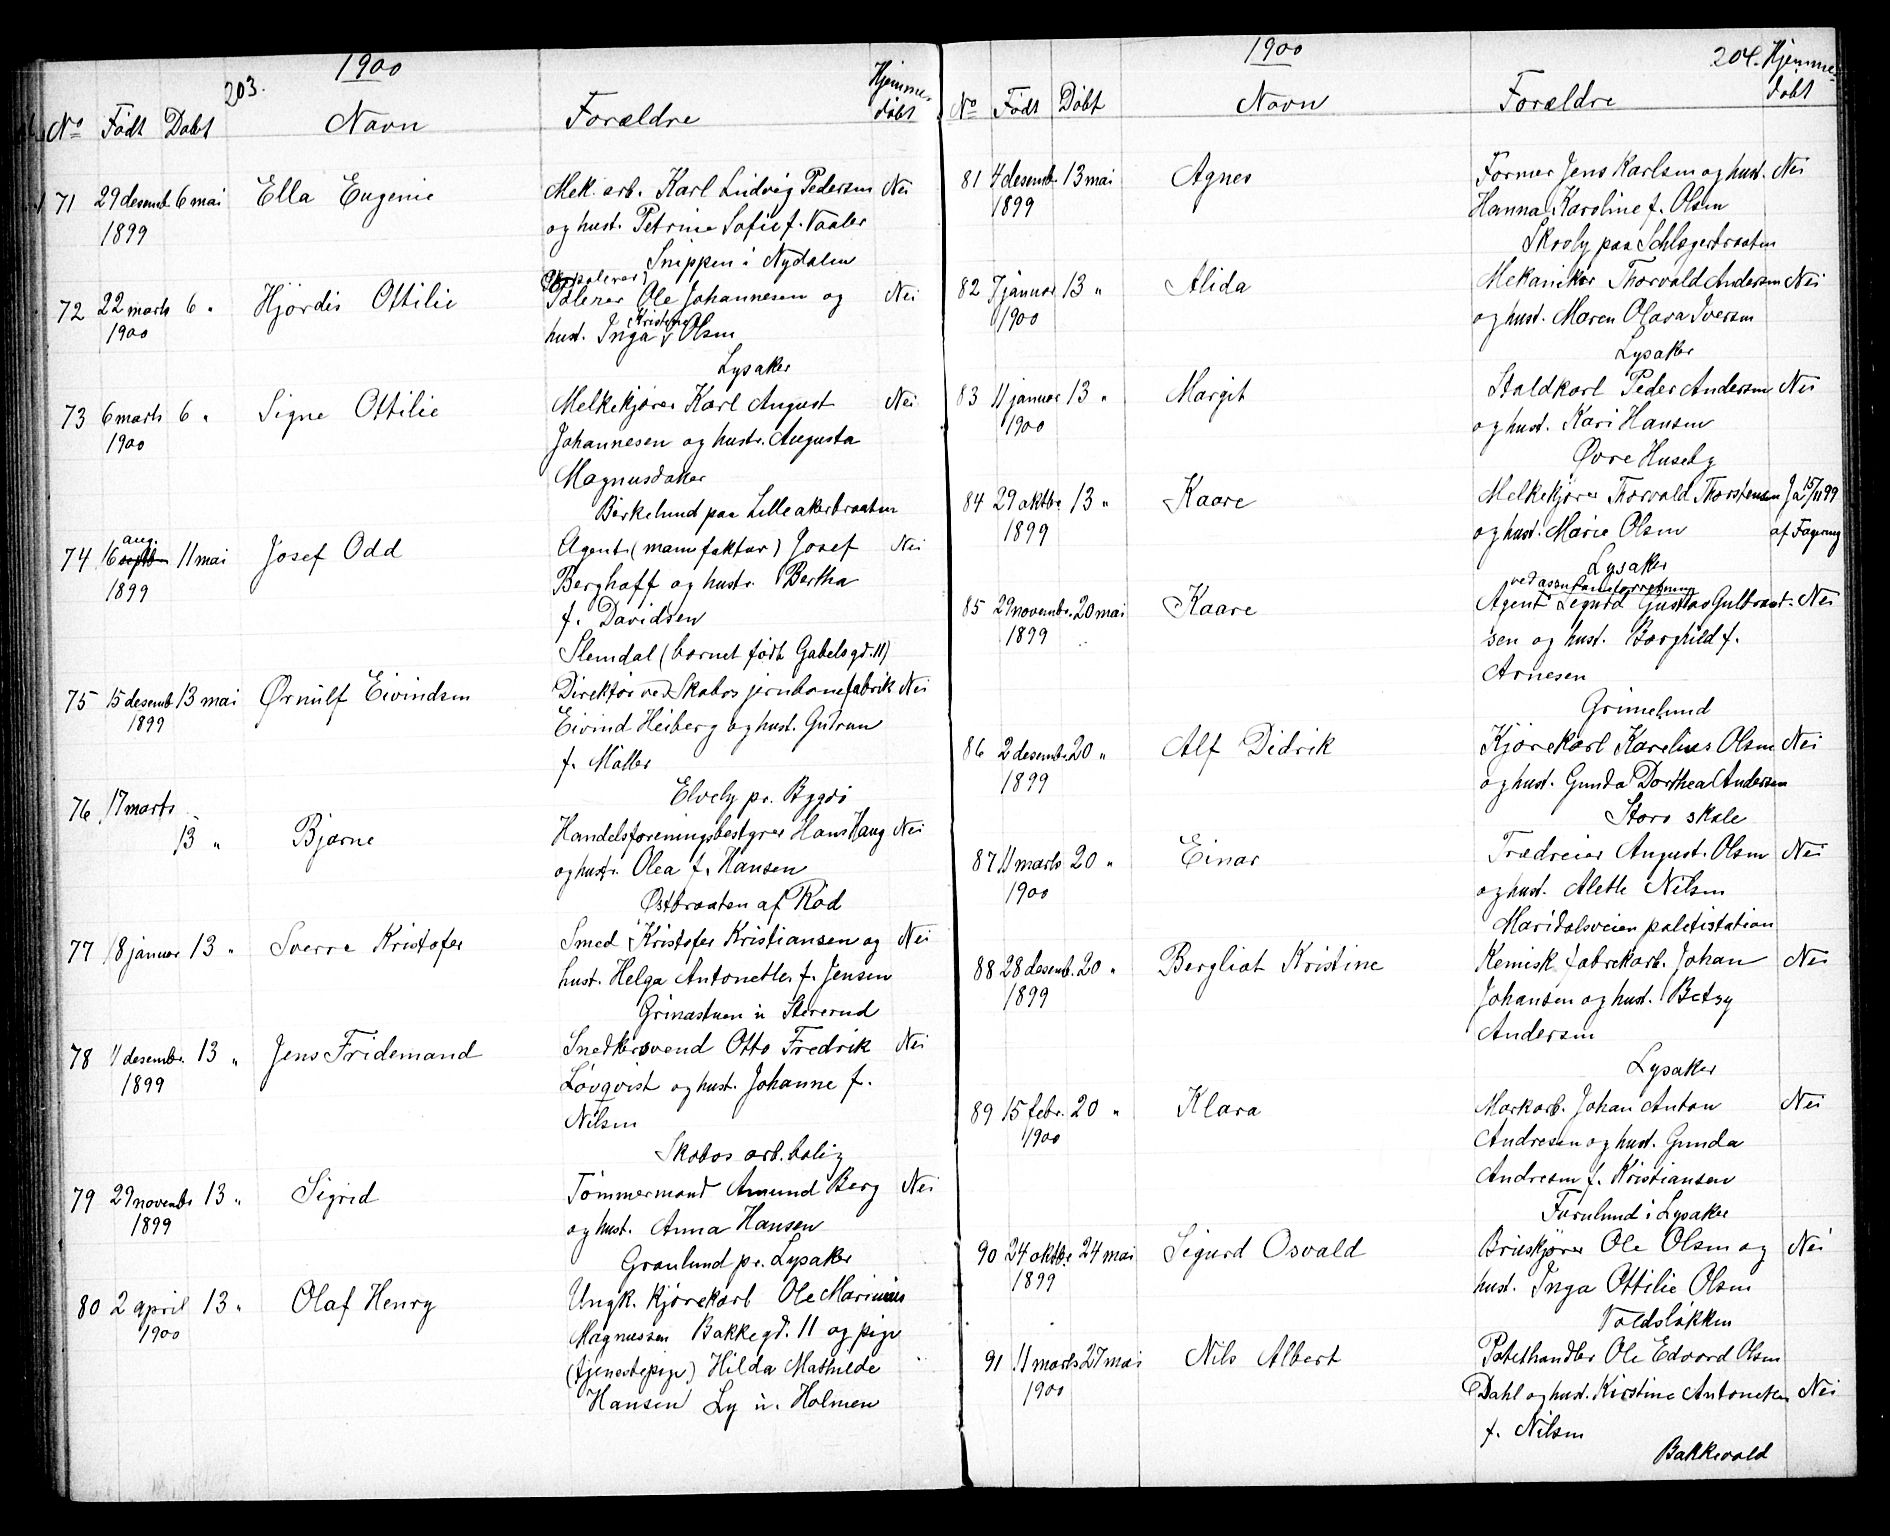 1900
203.
Hjemme-
døbt
No Født Døbt Navn Forældre
71 29 desemb. 6 mai Ella Eugenie Mek. arb. Karl Ludvig Pedersen Nei
1899 og hust. Petrine Sofie f. Vaaler
Snippen i Nydalen
72 22 marts 6 " Hjördis Ottilie Polerer Ole Johannesen og Nei
1900 hust. Inga Kristine Olsen
Lysaker
73 6 marts 6 " Signe Ottilie Melkekjører Karl August Nei
1900 Johannesen og hustr. Augusta
Magnusdaker
Birkelund paa Lilleakerbraaten
74 16 aug. 11 mai Josef Odd Agent (manufaktur) Josef Nei
1899 Berghoff og hustr. Bertha
f. Davidsen
Slemdal (barnet født Gabelsgd. 11)
75 15 desemb. 13 mai Ørnulf Eivindsen Direktør ved Skabos jernbanefabrik Nei
1899 Eivind Heiberg og hust. Gudrun
f. Møller
Elvely pr. Bygdö
76 17 marts
13 " Bjarne Handelsforeningsbestyrer Hans Haug Nei
og hustr. Olea f. Hansen
Østbraaten af Röd
77 18 januar 13 " Sverre Kristofer Smed Kristofer Kristiansen og Nei
hust. Helga Antonette f. Jensen
Grinastuen u.
78 11 desembr. 13 " Jens Fridemand Snedkersvend Otto Fredrik Nei
1899 Lövqvist og hust. Johanne f.
Nilsen
Skabos arb. bolig
79 29 novembr 13 " Sigrid Tömmermand Amund Berg Nei
1899 og hust. Anna Hansen
Granlund pr. Lysaker
80 2 april 13 " Olaf Henry Ungk. kjørekarl Ole Marinius
1900 Magnussen Bakkegd. 11 og pige
(tjenestepige) Hilda Mathilde
Hansen Ly u. Holmen
1900
204. Hjemme-
døbt
No Født Døbt Navn Forældre
81 4 desemb. 13 mai Agnes Former Jens Karlsen og hust. Nei
1899 Hanna Karoline f. Olsen
Skroly paa Schlägerbraaten
82 7 januar 13 " Alida Mekaniker Thorvald Andersen Nei
1900 og hust. Maren Olava Iversen
Lysaker
83 11 januar 13 " Margit Staldkarl Peder Andersen Nei
1900 og hust. Kari Hansen
Øvre Huseby
84 29 oktbr 13 " Kaare Melkekjører Thorvald Thorstensen Ja 15/11 99
1899 og hust. Marie Olsen af Fagereng
Lysaker
ved assuranseforretning
85 29 novembr. 20 mai Kaare Agent Sigurd Gustav Gulbrand- Nei
1899 sen og hust. Borghild f.
Arnesen
Grimelund
86 2 desembr. 20 " Alf Didrik Kjørekarl Karelius Olsen Nei
1899 og hust. Gunda Dorthea Andersen
Storo skole
87 11 marts 20 " Einar Trædreier August Olsen Nei
1900 og hust. Alette Nilsen
Maridalsveien politistation
88 28 desemb. 20 " Bergliot Kristine Kemisk fabrekarb. Johan Nei
1899 Johansen og hust. Betsy
Andersen
Lysaker
89 15 febr. 20 " Klara Markarb. Johan Anton Nei
1900 Andresen og hust. Gunda
Andresen f. Kristiansen
Furulund i Lysaker
90 24 oktbr. 24 mai Sigurd Osvald Bruskjører Ole Olsen og Nei
1899 hust. Inga Ottilie Olsen
Voldsløkken
91 11 marts 27 mai Nils Albert Potethandler Ole Edvard Olsen
1900 Dahl og hust. Kirstine Antonette Nei
f. Nilsen
Bakkevold